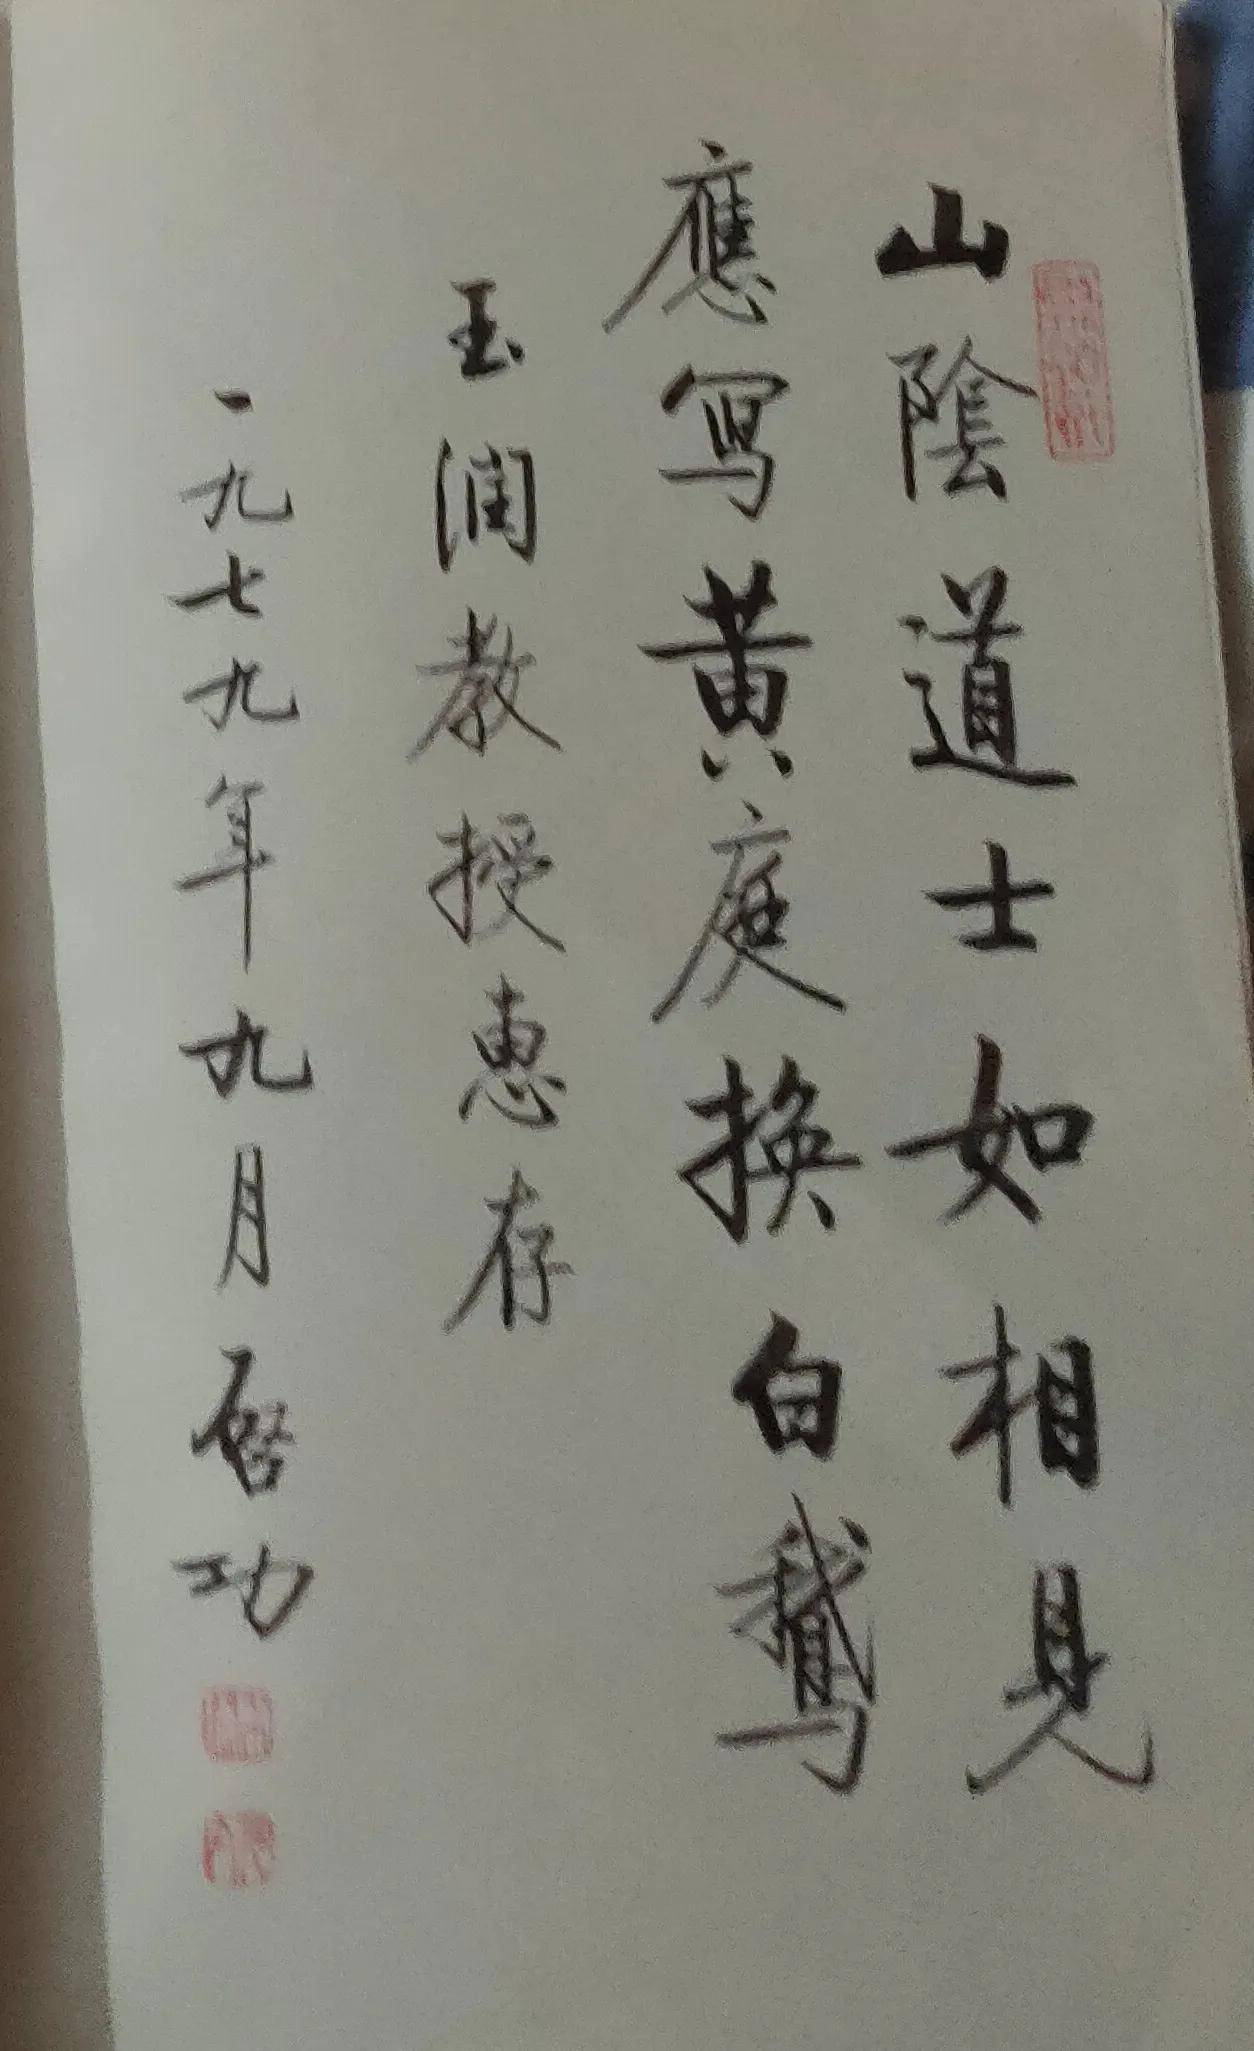 山陰道士如相見
應写黄庭換白鵝
玉润教授惠存
一九七九年九月启功